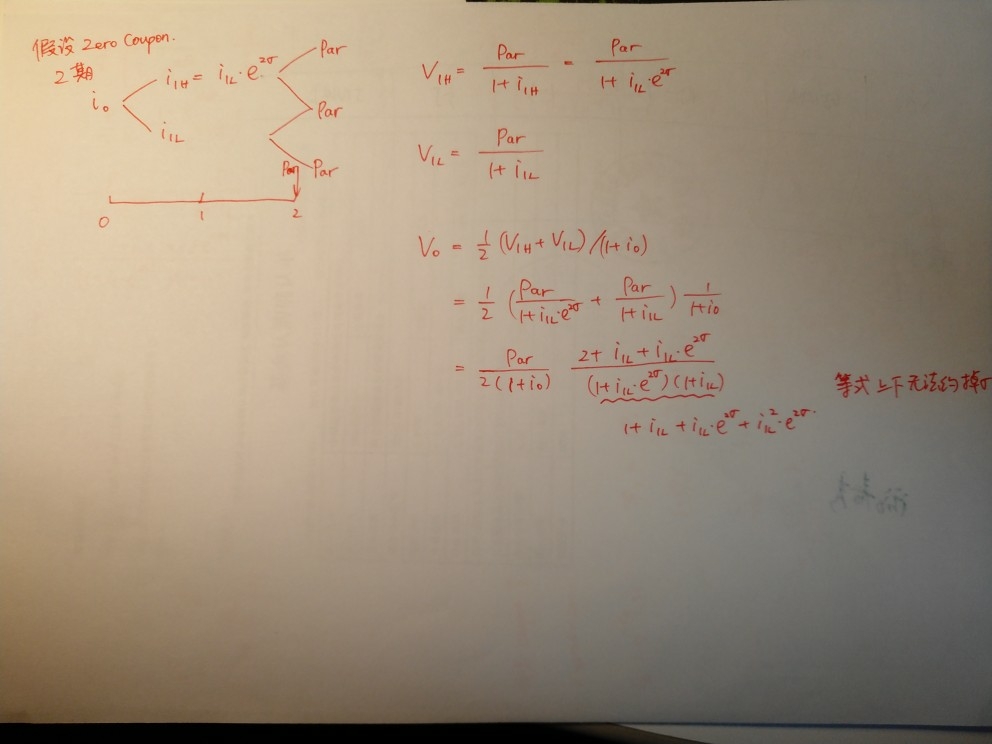 假设 Zero Coupon.
2期
i₀
i₁H = i₁L·e^{2σ}
i₁L
Par
Par
Par
Par
0 1 2
V₁H = Par / (1 + i₁H) = Par / (1 + i₁L·e^{2σ})
V₁L = Par / (1 + i₁L)
V₀ = 1/2 (V₁H + V₁L) / (1 + i₀)
= 1/2 (Par / (1 + i₁L·e^{2σ}) + Par / (1 + i₁L)) 1 / (1 + i₀)
= Par / 2(1 + i₀) (2 + i₁L + i₁L·e^{2σ}) / (1 + i₁L·e^{2σ})(1 + i₁L)
1 + i₁L + i₁L·e^{2σ} + i₁L²·e^{2σ}.
等式上下无法约掉σ